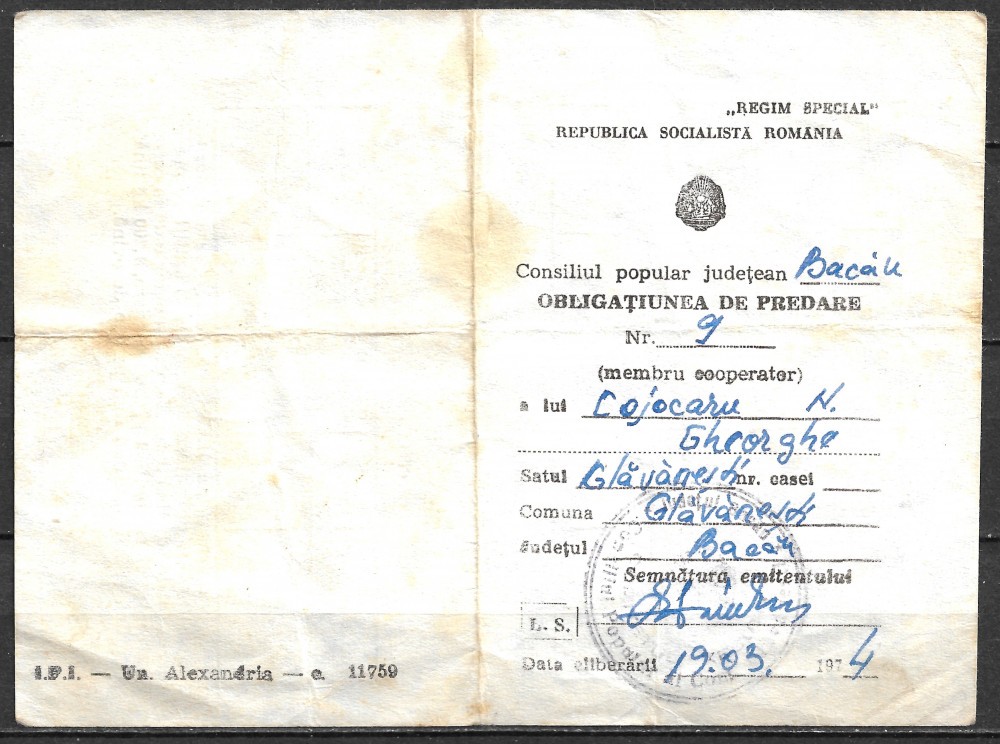 „REGIM SPECIAL”
REPUBLICA SOCIALISTĂ ROMÂNIA
Consiliul popular județean Bacău
OBLIGAȚIUNEA DE PREDARE
Nr. 9
(membru cooperator)
a lui Cojocaru N.
Gheorghe
Satul Glăvănești nr. casei
Comuna Glăvănești
Județul Bacău
Semnătura emitentului
L. S.
Data eliberării 19.03. 1974
I.P.I. — Un. Alexandria — c. 11759